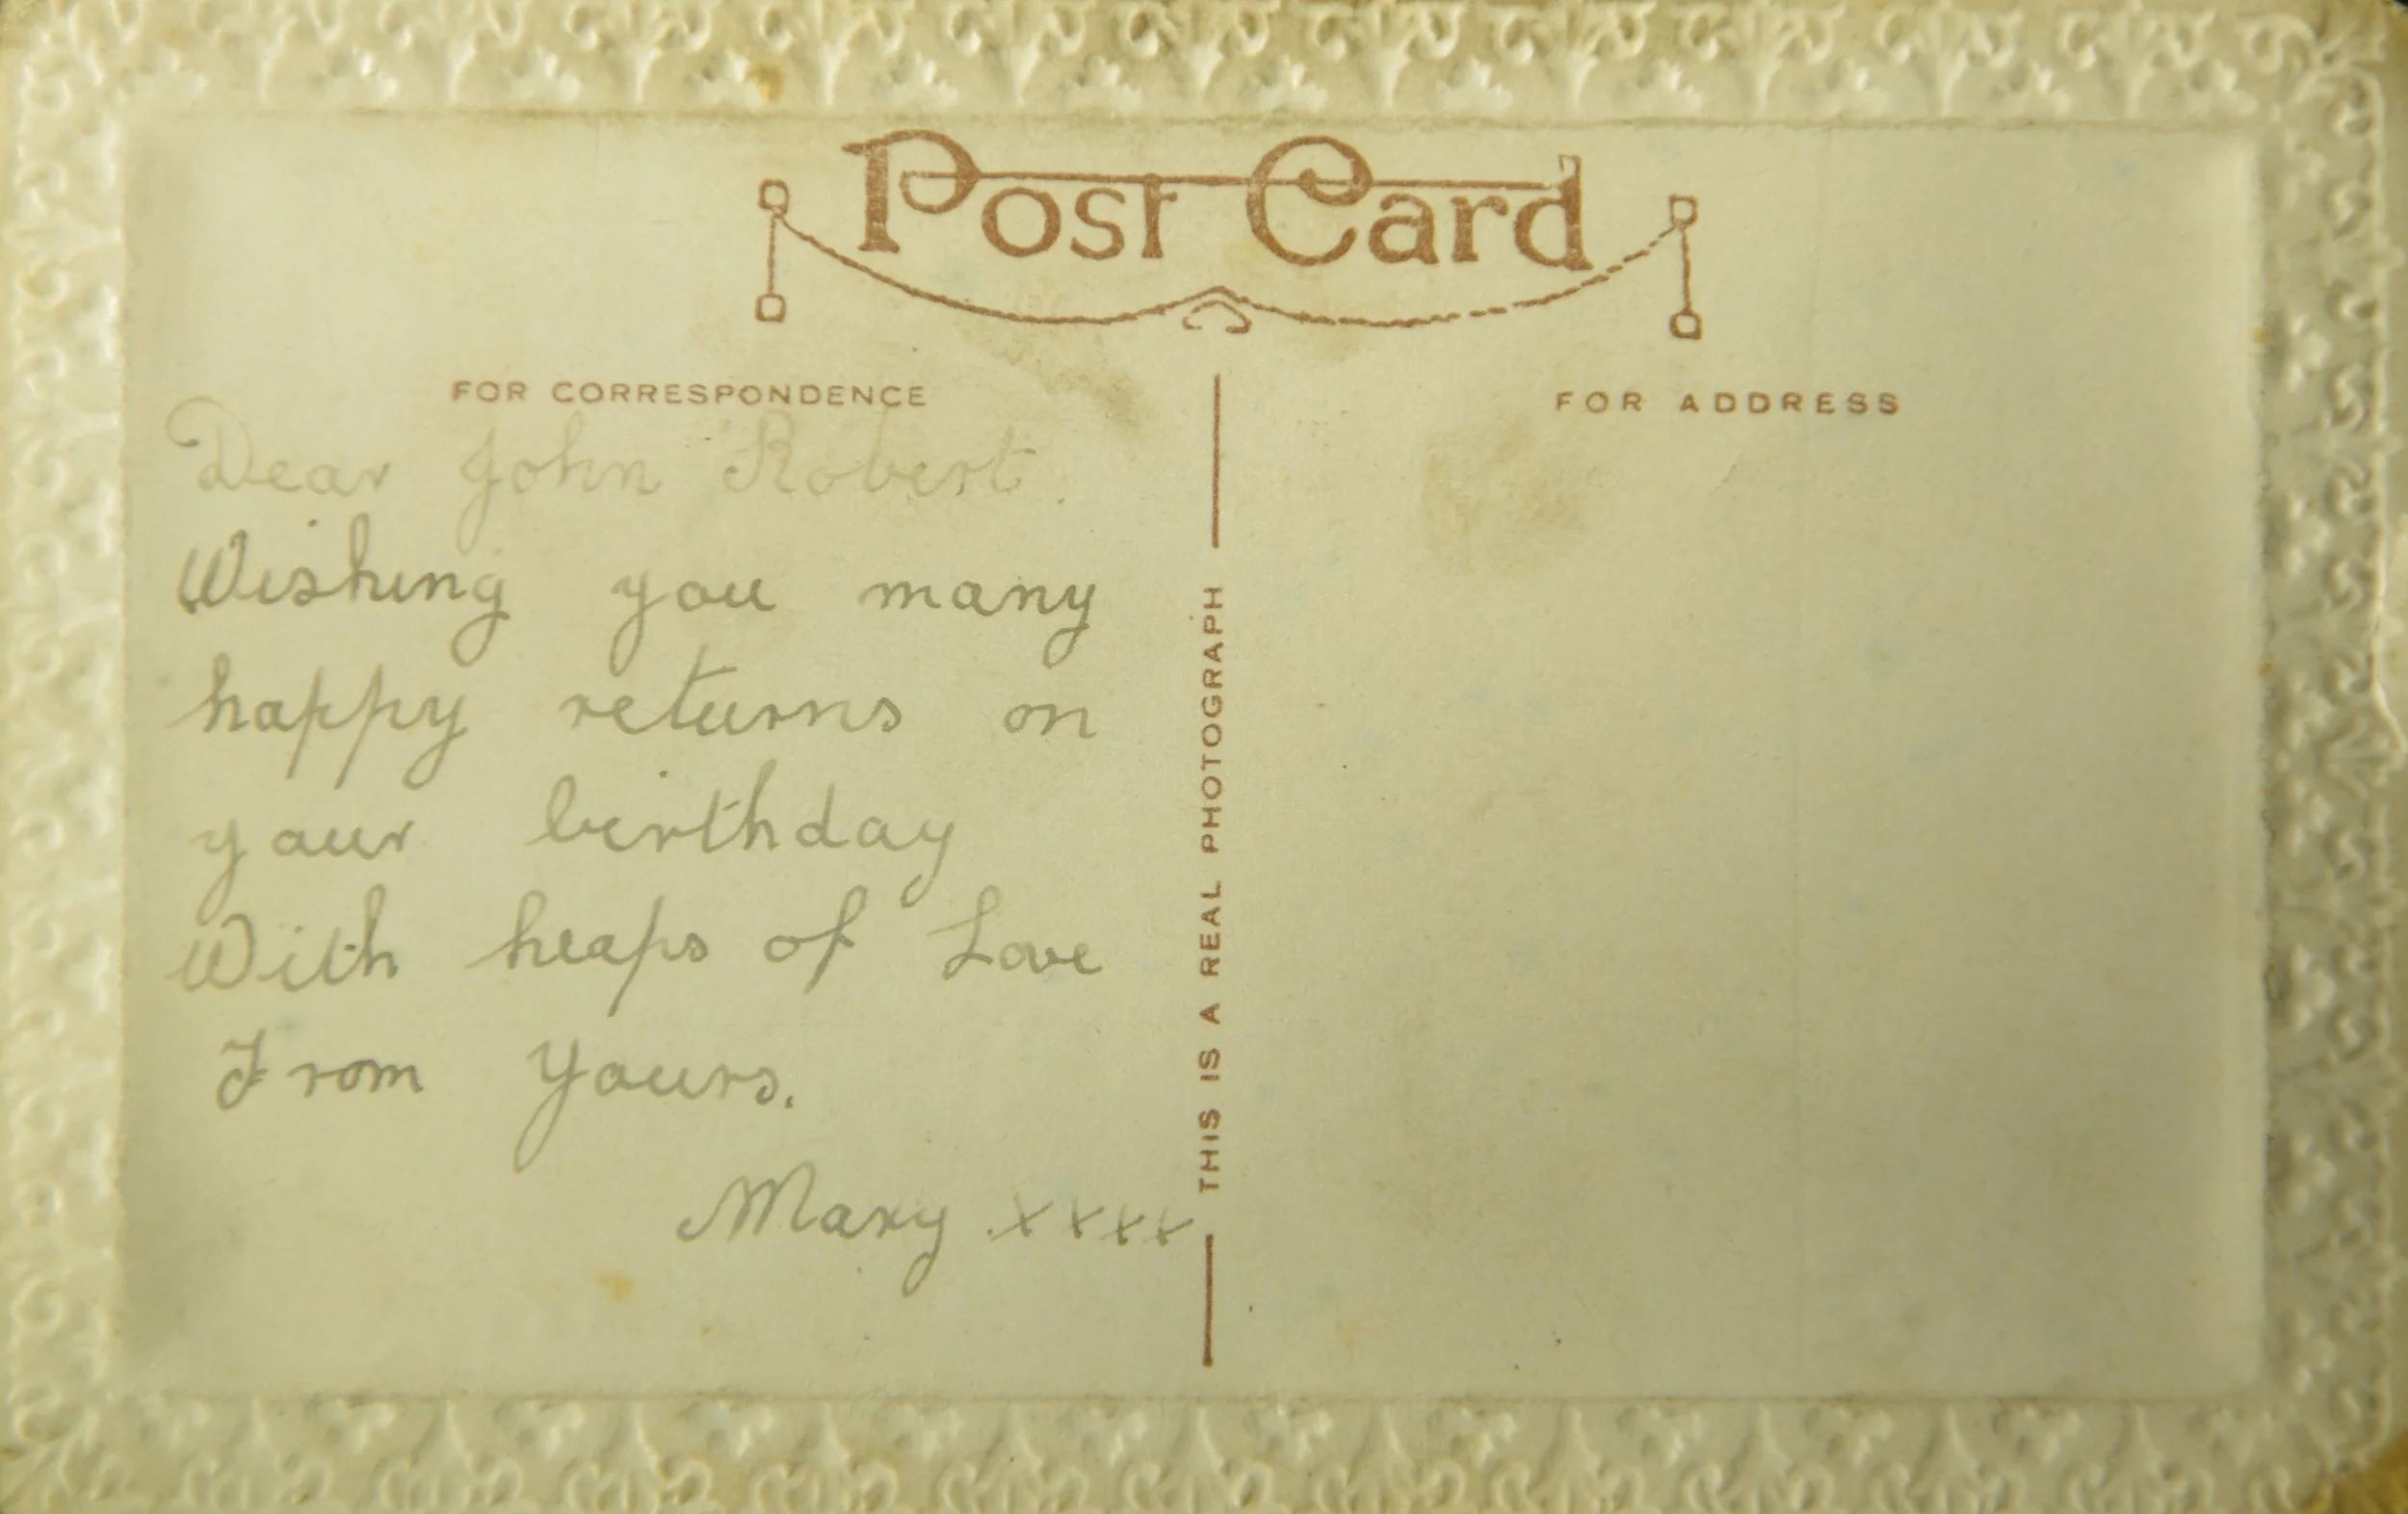 Post Card
FOR CORRESPONDENCE
FOR ADDRESS
Dear John Robert.
Wishing you many
happy returns on
your birthday
With heaps of Love
From Yours.
Mary xxxx
THIS IS A REAL PHOTOGRAPH